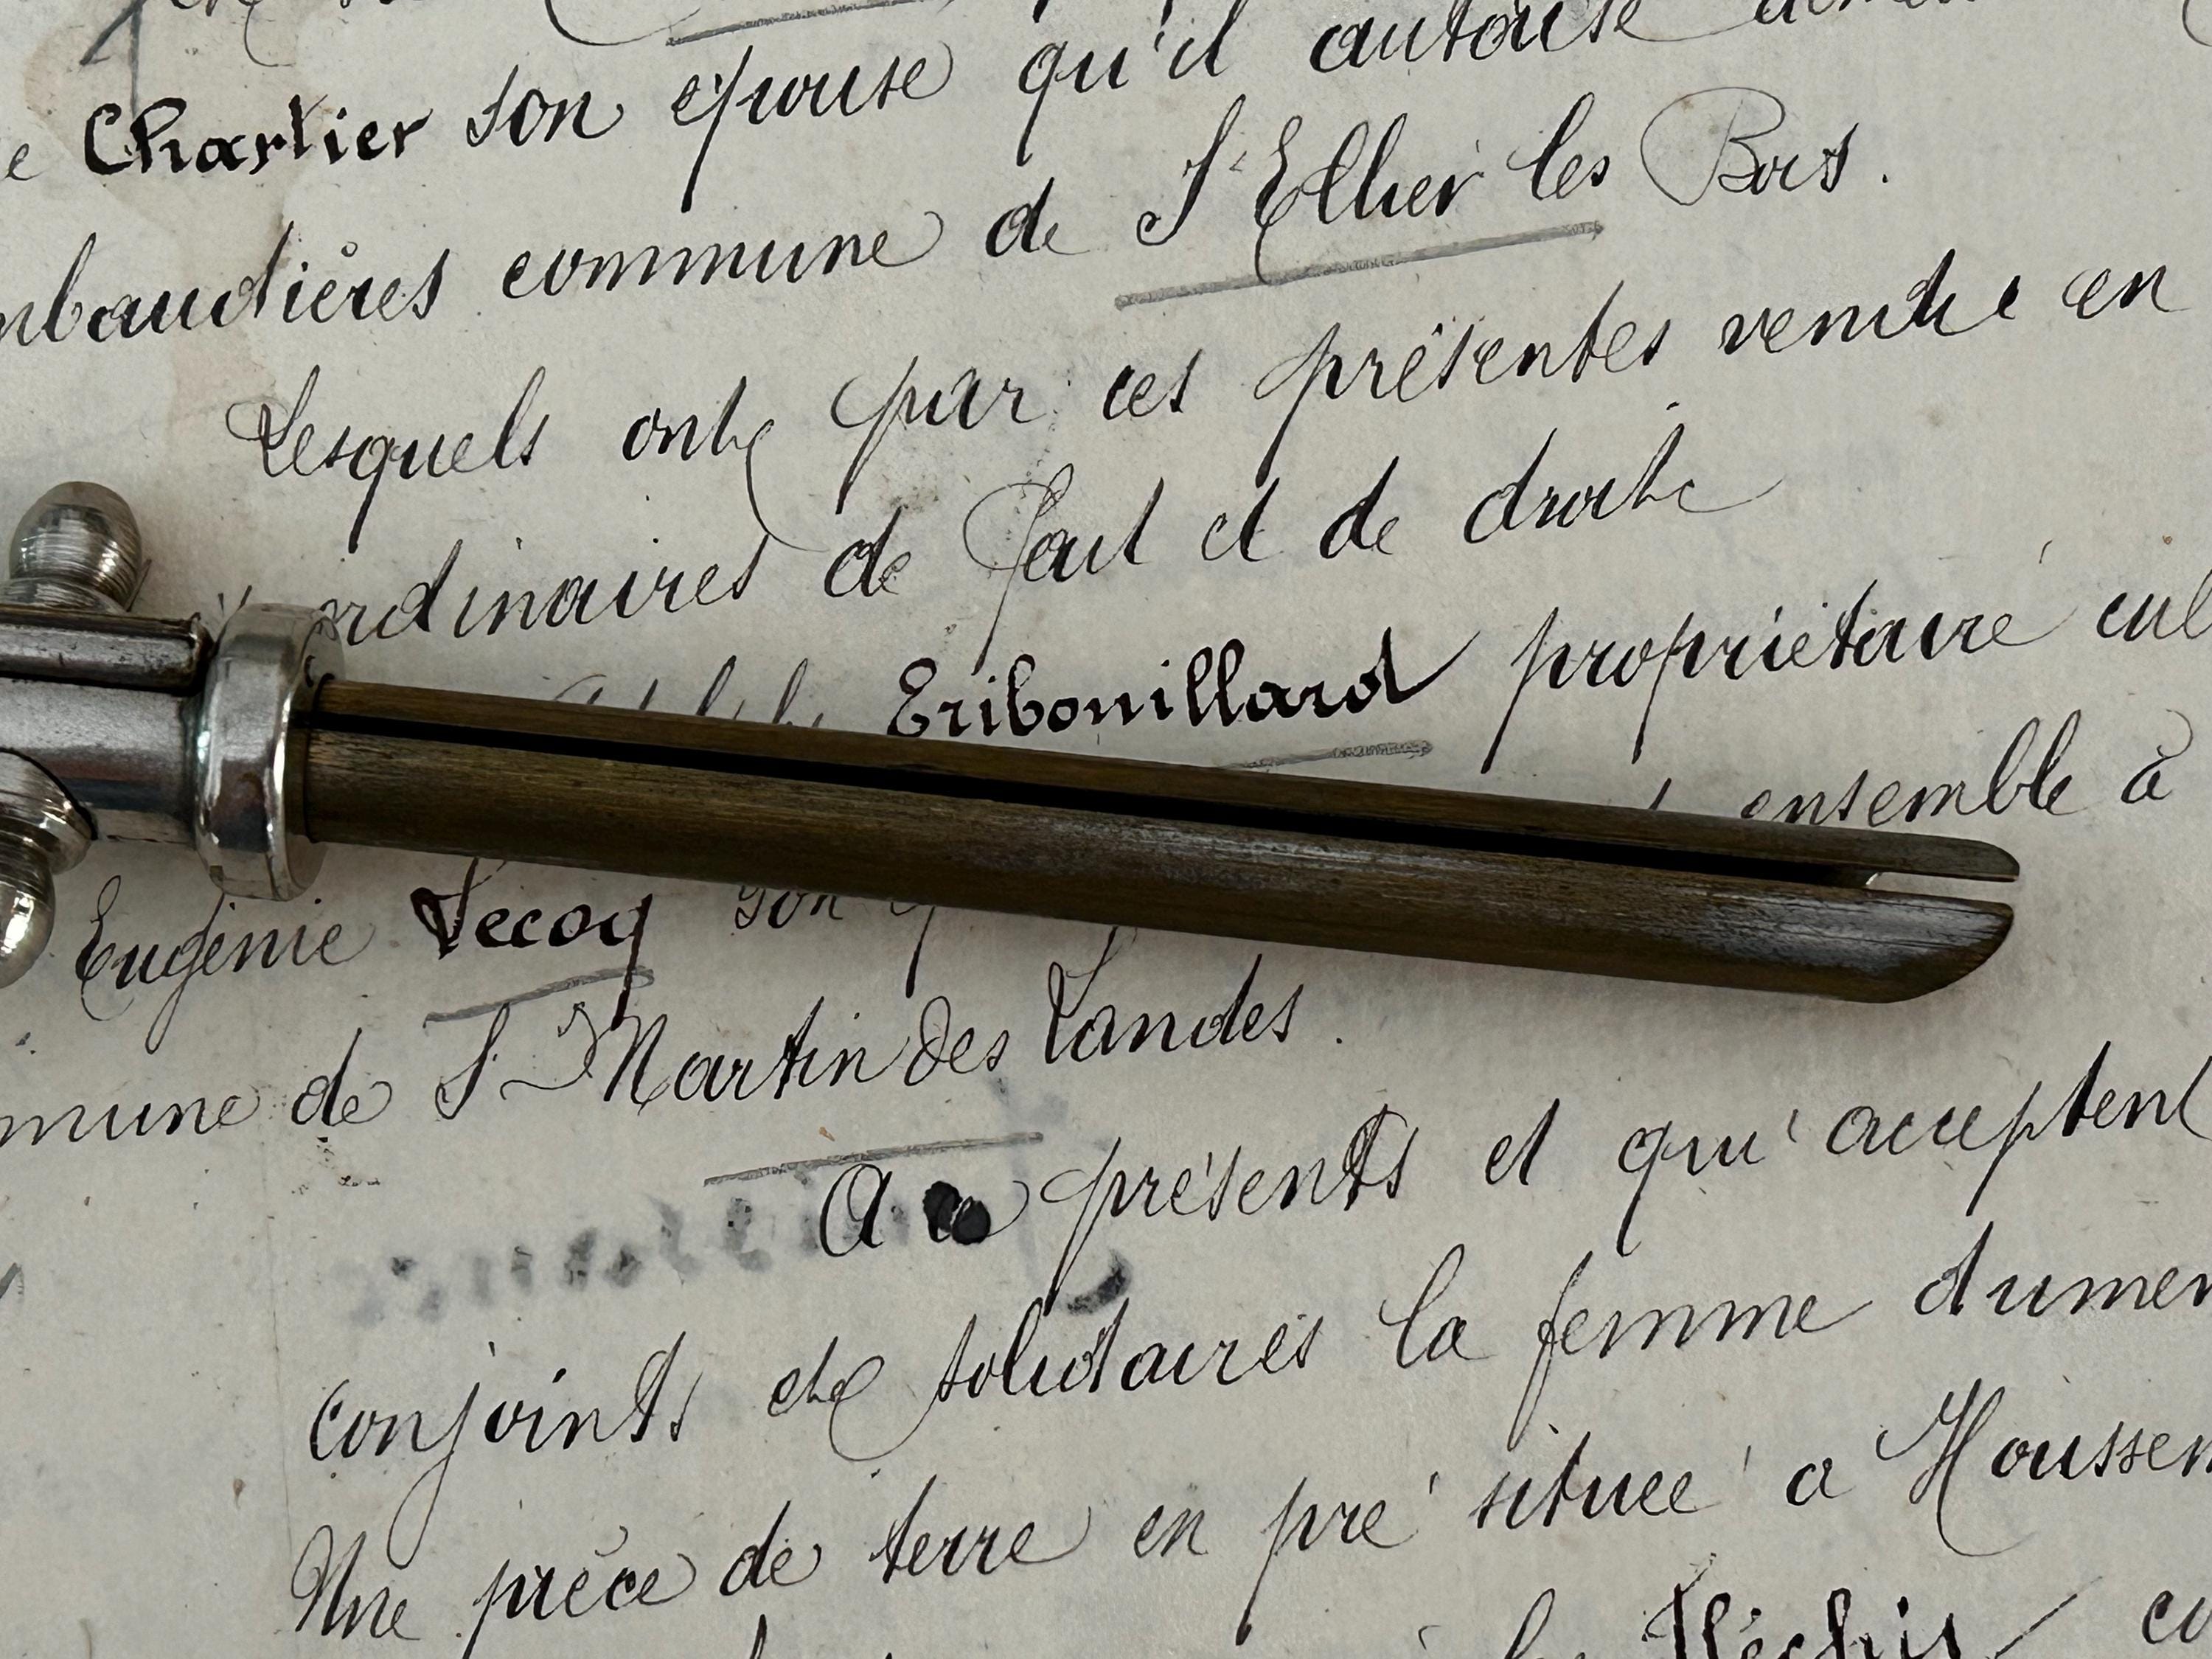 Chartier son épouse qu'il autorise
nbaudières commune de St Ellier les Bois.
Lesquels ont par ces présentes vendu en
ordinaires de fait et de droit
Tribouillard propriétaire cul
ensemble à
Eugénie Lecoq son
mune de St Martin des Landes.
A ce présents et qu'acceptent
conjoints et solidaires la femme dumen
Une pièce de terre en pré située a Houssem